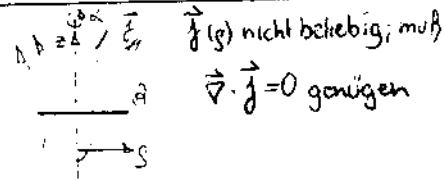 z α
j⃗(ρ) nicht beliebig; muß
∇⃗ · j⃗ = 0 genügen
ρ